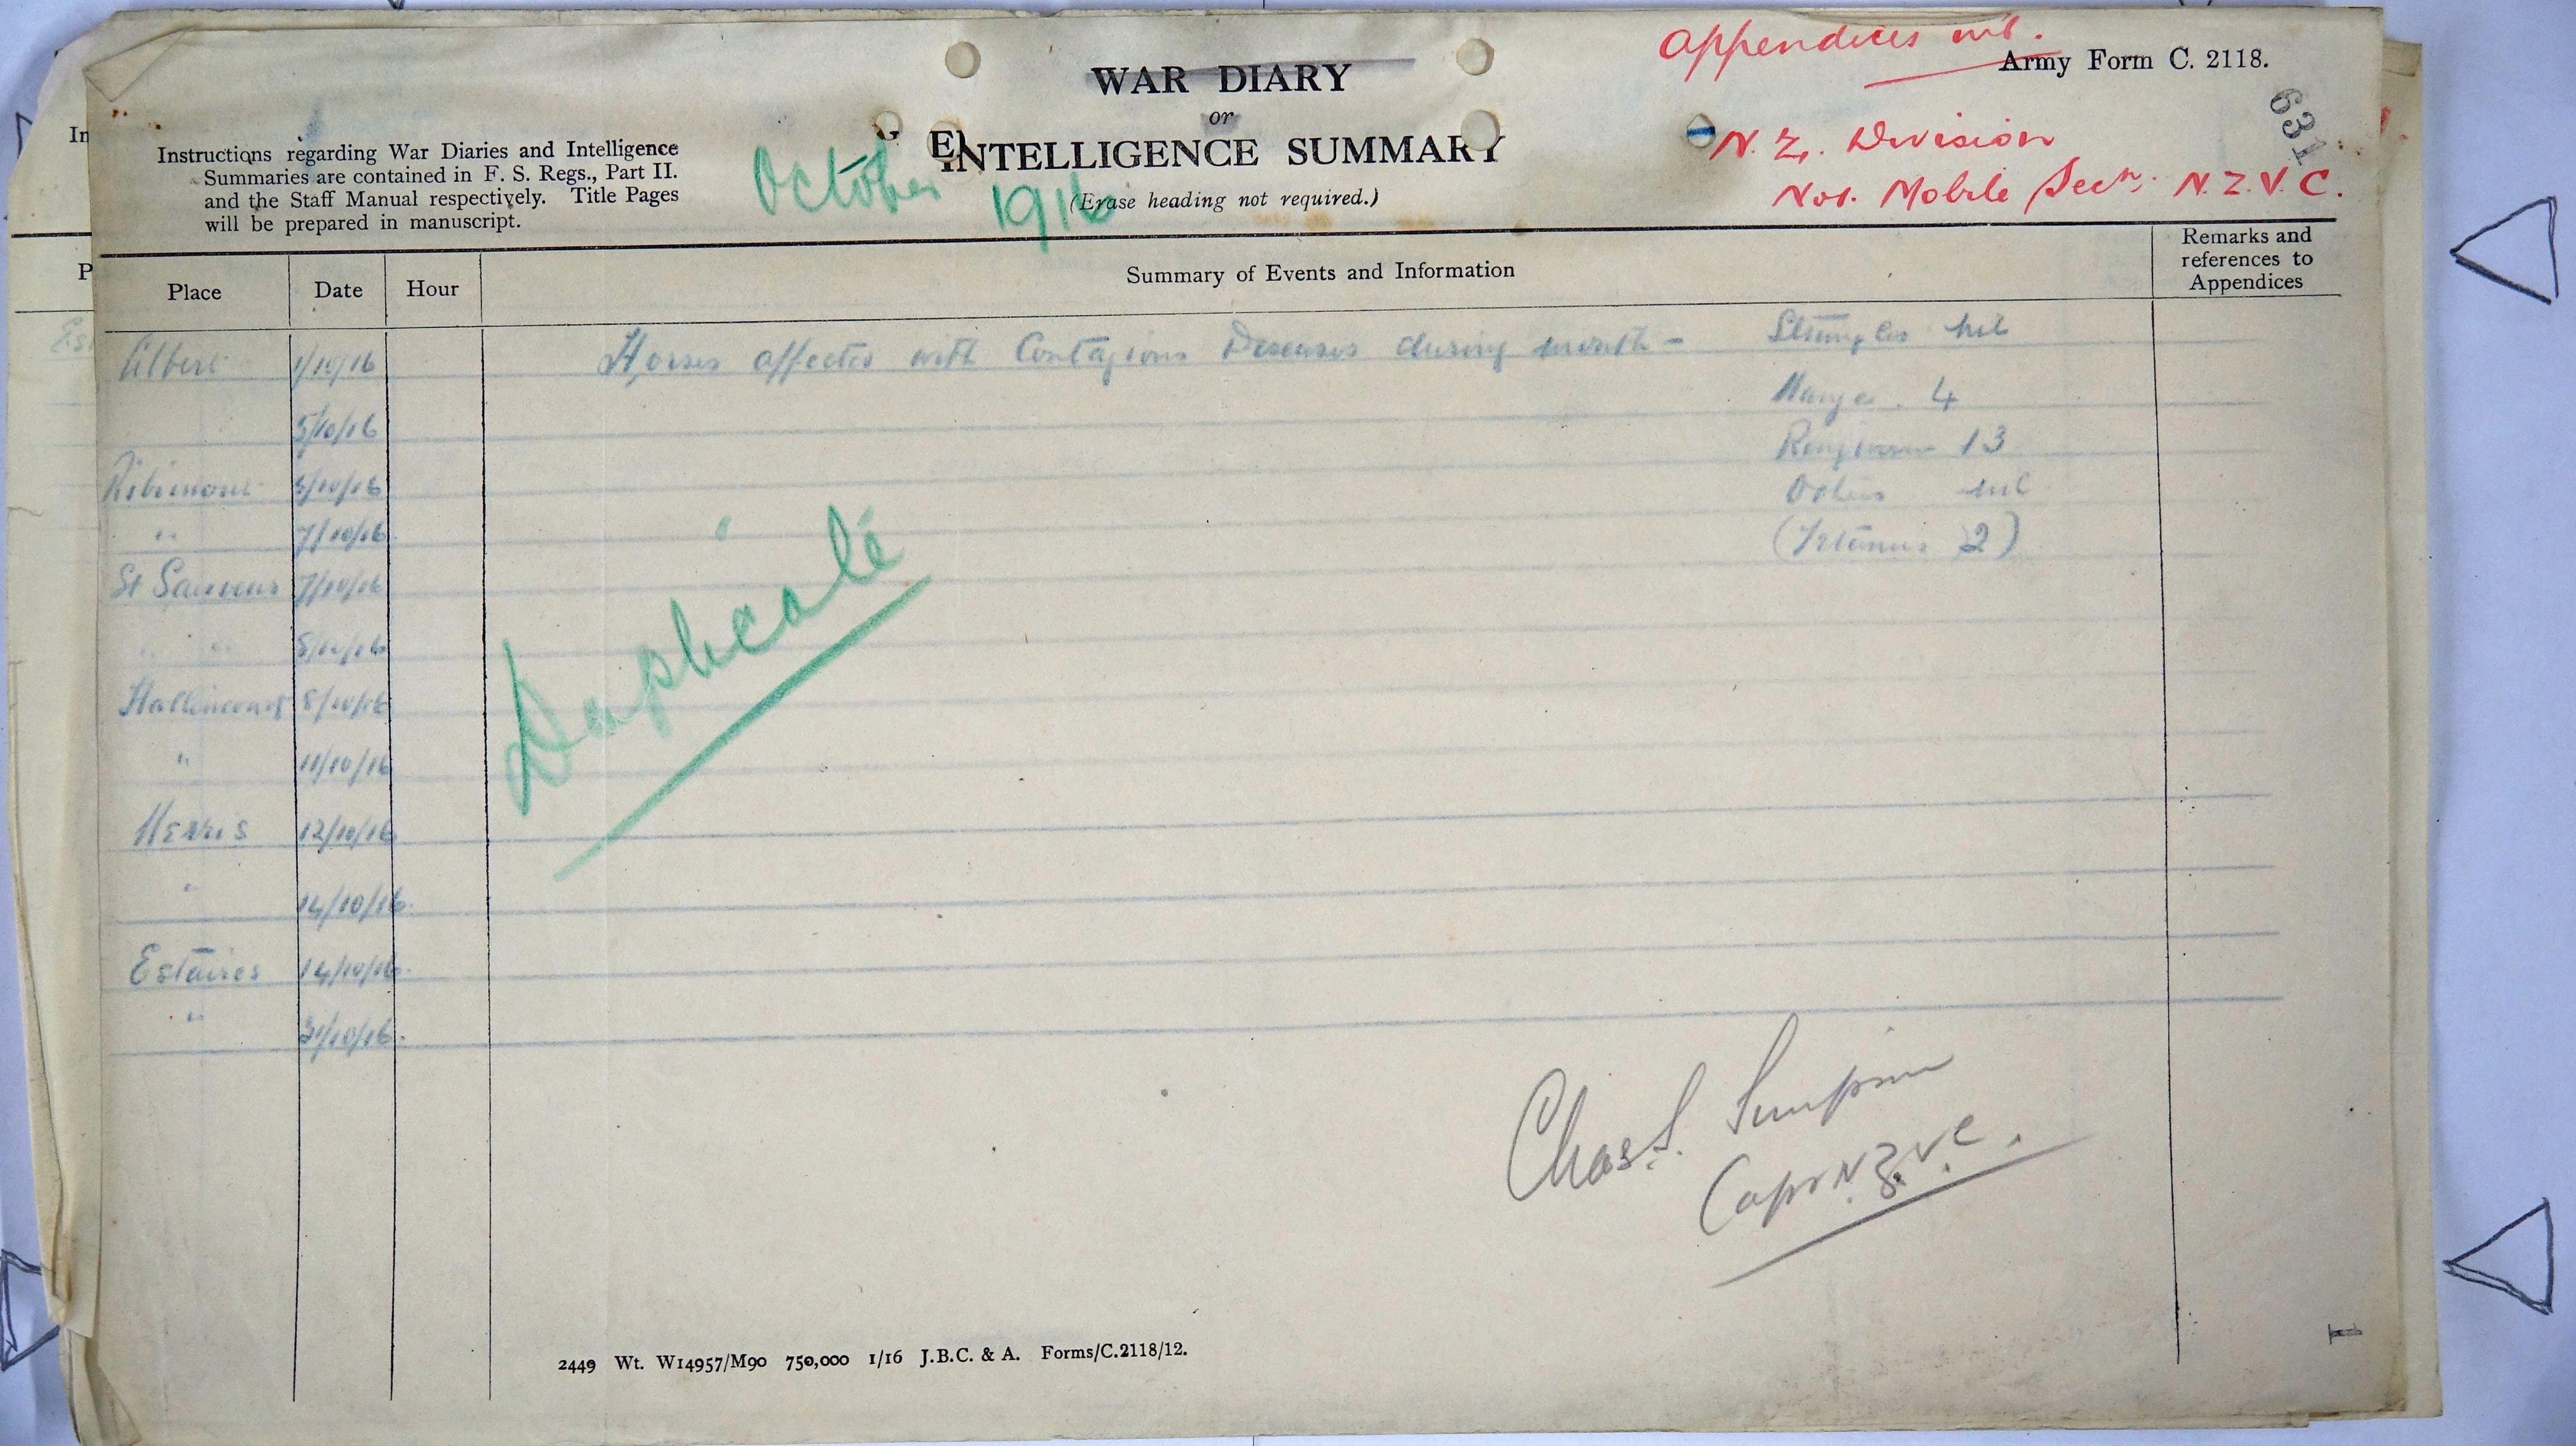 Appendices nil.
Army Form C. 2118.
631
WAR DIARY
or
INTELLIGENCE SUMMARY
(Erase heading not required.)
Instructions regarding War Diaries and Intelligence
Summaries are contained in F. S. Regs., Part II.
and the Staff Manual respectively. Title Pages
will be prepared in manuscript.
October 1916
N. Z. Division
No1. Mobile Sectn. N. Z. V. C.
Place Date Hour Summary of Events and Information Remarks and references to Appendices
Albert 1/10/16 Horses affected with Contagious Diseases during month - Strangles nil
Mange . 4
5/10/16
Ringworm 13
Ribemont 5/10/16 Others nil
" 7/10/16 (Tetanus 2)
St Sauveur 7/10/16
" " 8/10/16
Hallincourt 8/10/16
" 11/10/16
Merris 12/10/16
" 14/10/16
Estaires 14/10/16
" 31/10/16.
Duplicate
Chas. S. Simpson
Capt N.Z.V.C.
2449 Wt. W14957/M90 750,000 1/16 J.B.C. & A. Forms/C.2118/12.
1